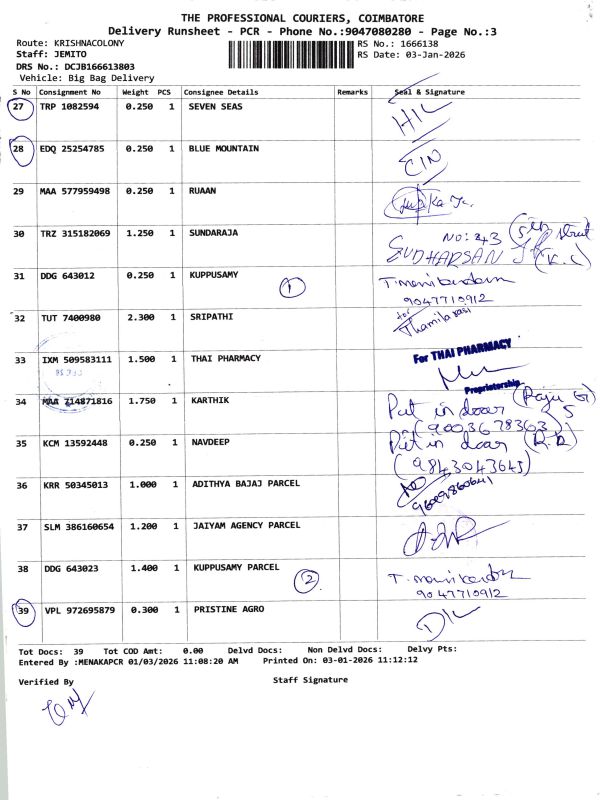 THE PROFESSIONAL COURIERS, COIMBATORE
Delivery Runsheet - PCR - Phone No.:9047080280 - Page No.:3
Route: KRISHNACOLONY
Staff: JEMITO
DRS No.: DCJB166613803
Vehicle: Big Bag Delivery
RS No.: 1666138
RS Date: 03-Jan-2026
S No Consignment No Weight PCS Consignee Details Remarks Seal & Signature
27 TRP 1082594 0.250 1 SEVEN SEAS
28 EDQ 25254785 0.250 1 BLUE MOUNTAIN
29 MAA 577959498 0.250 1 RUAAN
30 TRZ 315182069 1.250 1 SUNDARAJA NO: 43
SUDHARSAN (K.C)
31 DDG 643012 0.250 1 KUPPUSAMY 1 T.manikandan
9047710912
32 TUT 7400980 2.300 1 SRIPATHI for Thamilarasi
33 IXM 509583111 1.500 1 THAI PHARMACY For THAI PHARMACY
Proprietorship
34 MAA 714871816 1.750 1 KARTHIK Put in door
(9003678363)
35 KCM 13592448 0.250 1 NAVDEEP Put in door (R.R)
(9843043645)
36 KRR 50345013 1.000 1 ADITHYA BAJAJ PARCEL
37 SLM 386160654 1.200 1 JAIYAM AGENCY PARCEL
38 DDG 643023 1.400 1 KUPPUSAMY PARCEL 2 T.manikandan
9047710912
39 VPL 972695879 0.300 1 PRISTINE AGRO
Tot Docs: 39 Tot COD Amt: 0.00 Delvd Docs: Non Delvd Docs: Delvy Pts:
Entered By :MENAKAPCR 01/03/2026 11:08:20 AM Printed On: 03-01-2026 11:12:12
Verified By Staff Signature